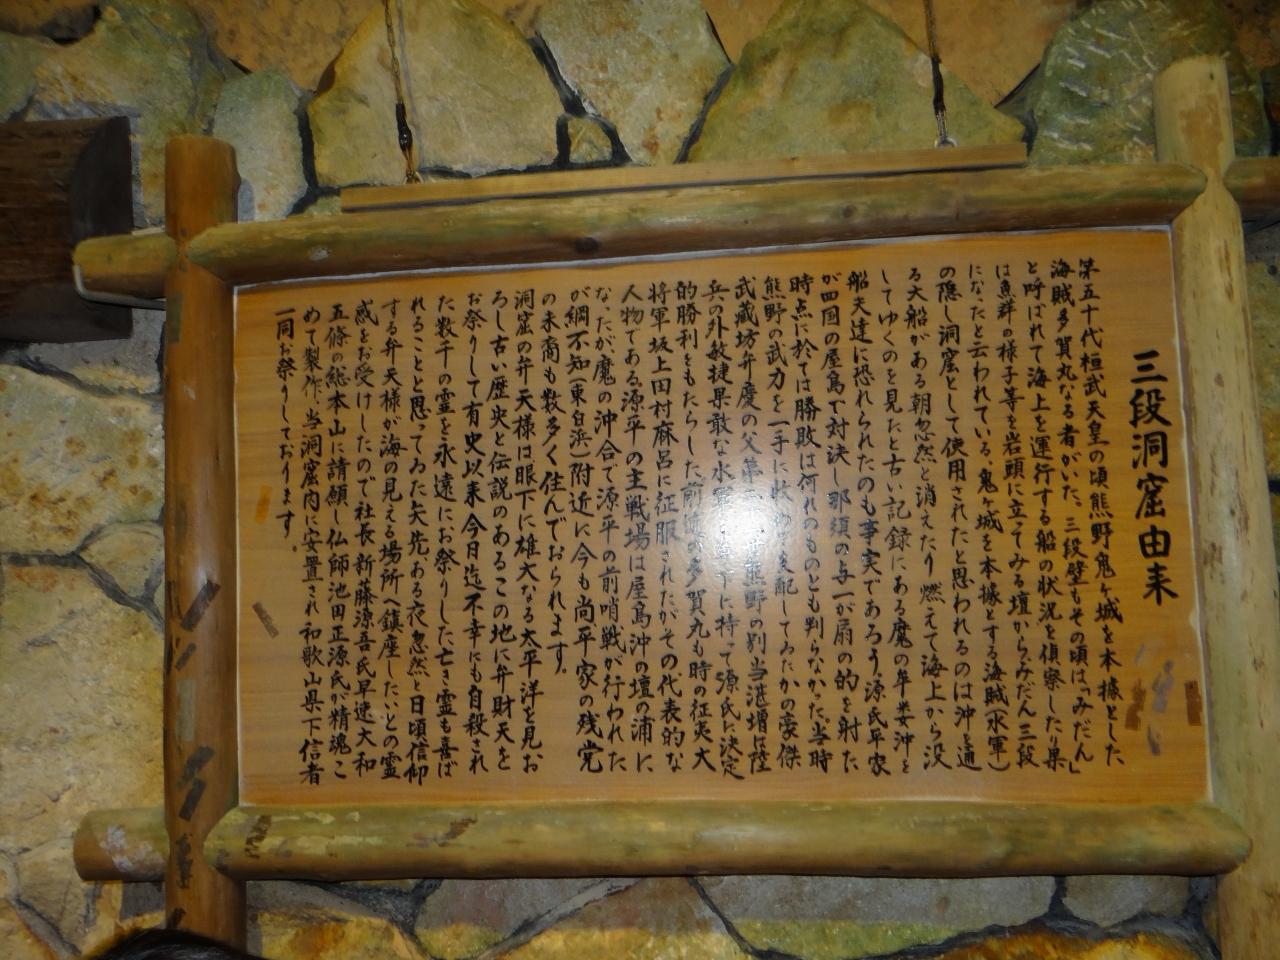 三段洞窟由来
第五十代桓武天皇の頃熊野鬼ヶ城を本據とした
海賊多賀丸なる者がいた。三段壁もその頃は「みだん」
と呼ばれて海上を運行する船の状況を偵察したり果
は魚群の様子等を岩頭に立てみる壇からみだん三段
になったと云われている。鬼ヶ城を本據とする海賊(水軍)
の隠し洞窟として使用されたと思われるのは沖を通
る大船がある朝忽然と消えたり燃えて海上から没
してゆくのを見たと古い記録にある魔の牟婁沖と
船夫達に恐れられたのも事実であろう源氏平家
が四国の屋島で対決し那須の与一が扇の的を射た
時点に於ては勝敗は何れのものとも判らなかった。当時
熊野の武力を一手に収め支配してゐたかの豪傑
武蔵坊弁慶の父第 熊野の別当湛増は陸
兵の外敏捷果敢な水軍 に持って源氏に決定
的勝利をもたらした前述の多賀丸も時の征夷大
将軍坂上田村麻呂に征服されたがその代表的な
人物である源平の主戦場は屋島沖の壇の浦に
なったが魔の沖合で源平の前哨戦が行われた
が綱不知(東白浜)附近に今も尚平家の残党
の末裔も数多く住んでおられます。
洞窟の弁天様は眼下に雄大なる太平洋を見お
ろし古い歴史と伝説のあるこの地に弁財天を
お祭りして有史以来今日迄不幸にも自殺され
た数千の霊を永遠にお祭りした亡き霊も喜ば
れることと思ってゐた矢先、ある夜忽然と日頃信仰
する弁天様が海の見える場所へ鎮座したいとの霊
感をお受けしたので社長新藤源吾氏早速大和
五條の総本山に請願し仏師池田正源氏が精魂こ
めて製作、当洞窟内に安置され和歌山県下信者
一同お祭りしております。